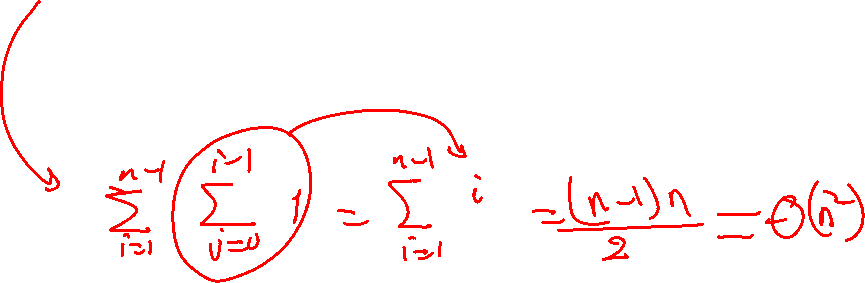 \sum_{i=1}^{n-1} \sum_{j=0}^{i-1} 1 = \sum_{i=1}^{n-1} i = \frac{(n-1)n}{2} = \Theta(n^2)